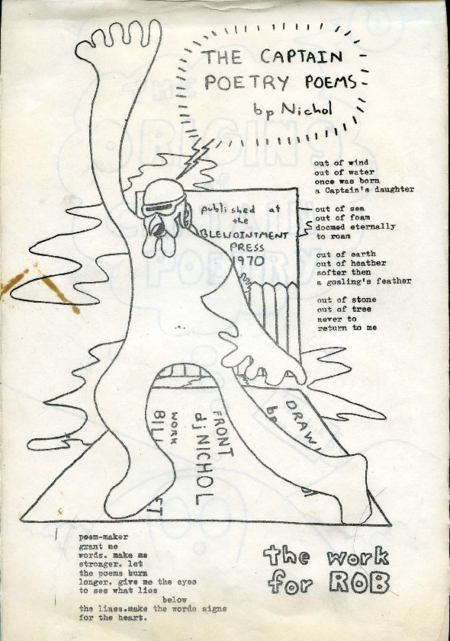 THE CAPTAIN
POETRY POEMS
bp Nichol
out of wind
out of water
once was born
a Captain's daughter
out of sea
out of foam
doomed eternally
to roam
out of earth
out of heather
softer then
a gosling's feather
out of stone
out of tree
never to
return to me
published at
the
BLEWOINTMENT
PRESS
1970
FRONT
dj NICHOL
WORK
BILL
DRAW
bp
poem-maker
grant me
words. make me
stronger. let
the poems burn
longer. give me the eyes
to see what lies
below
the lines.make the words signs
for the heart.
the work
for ROB